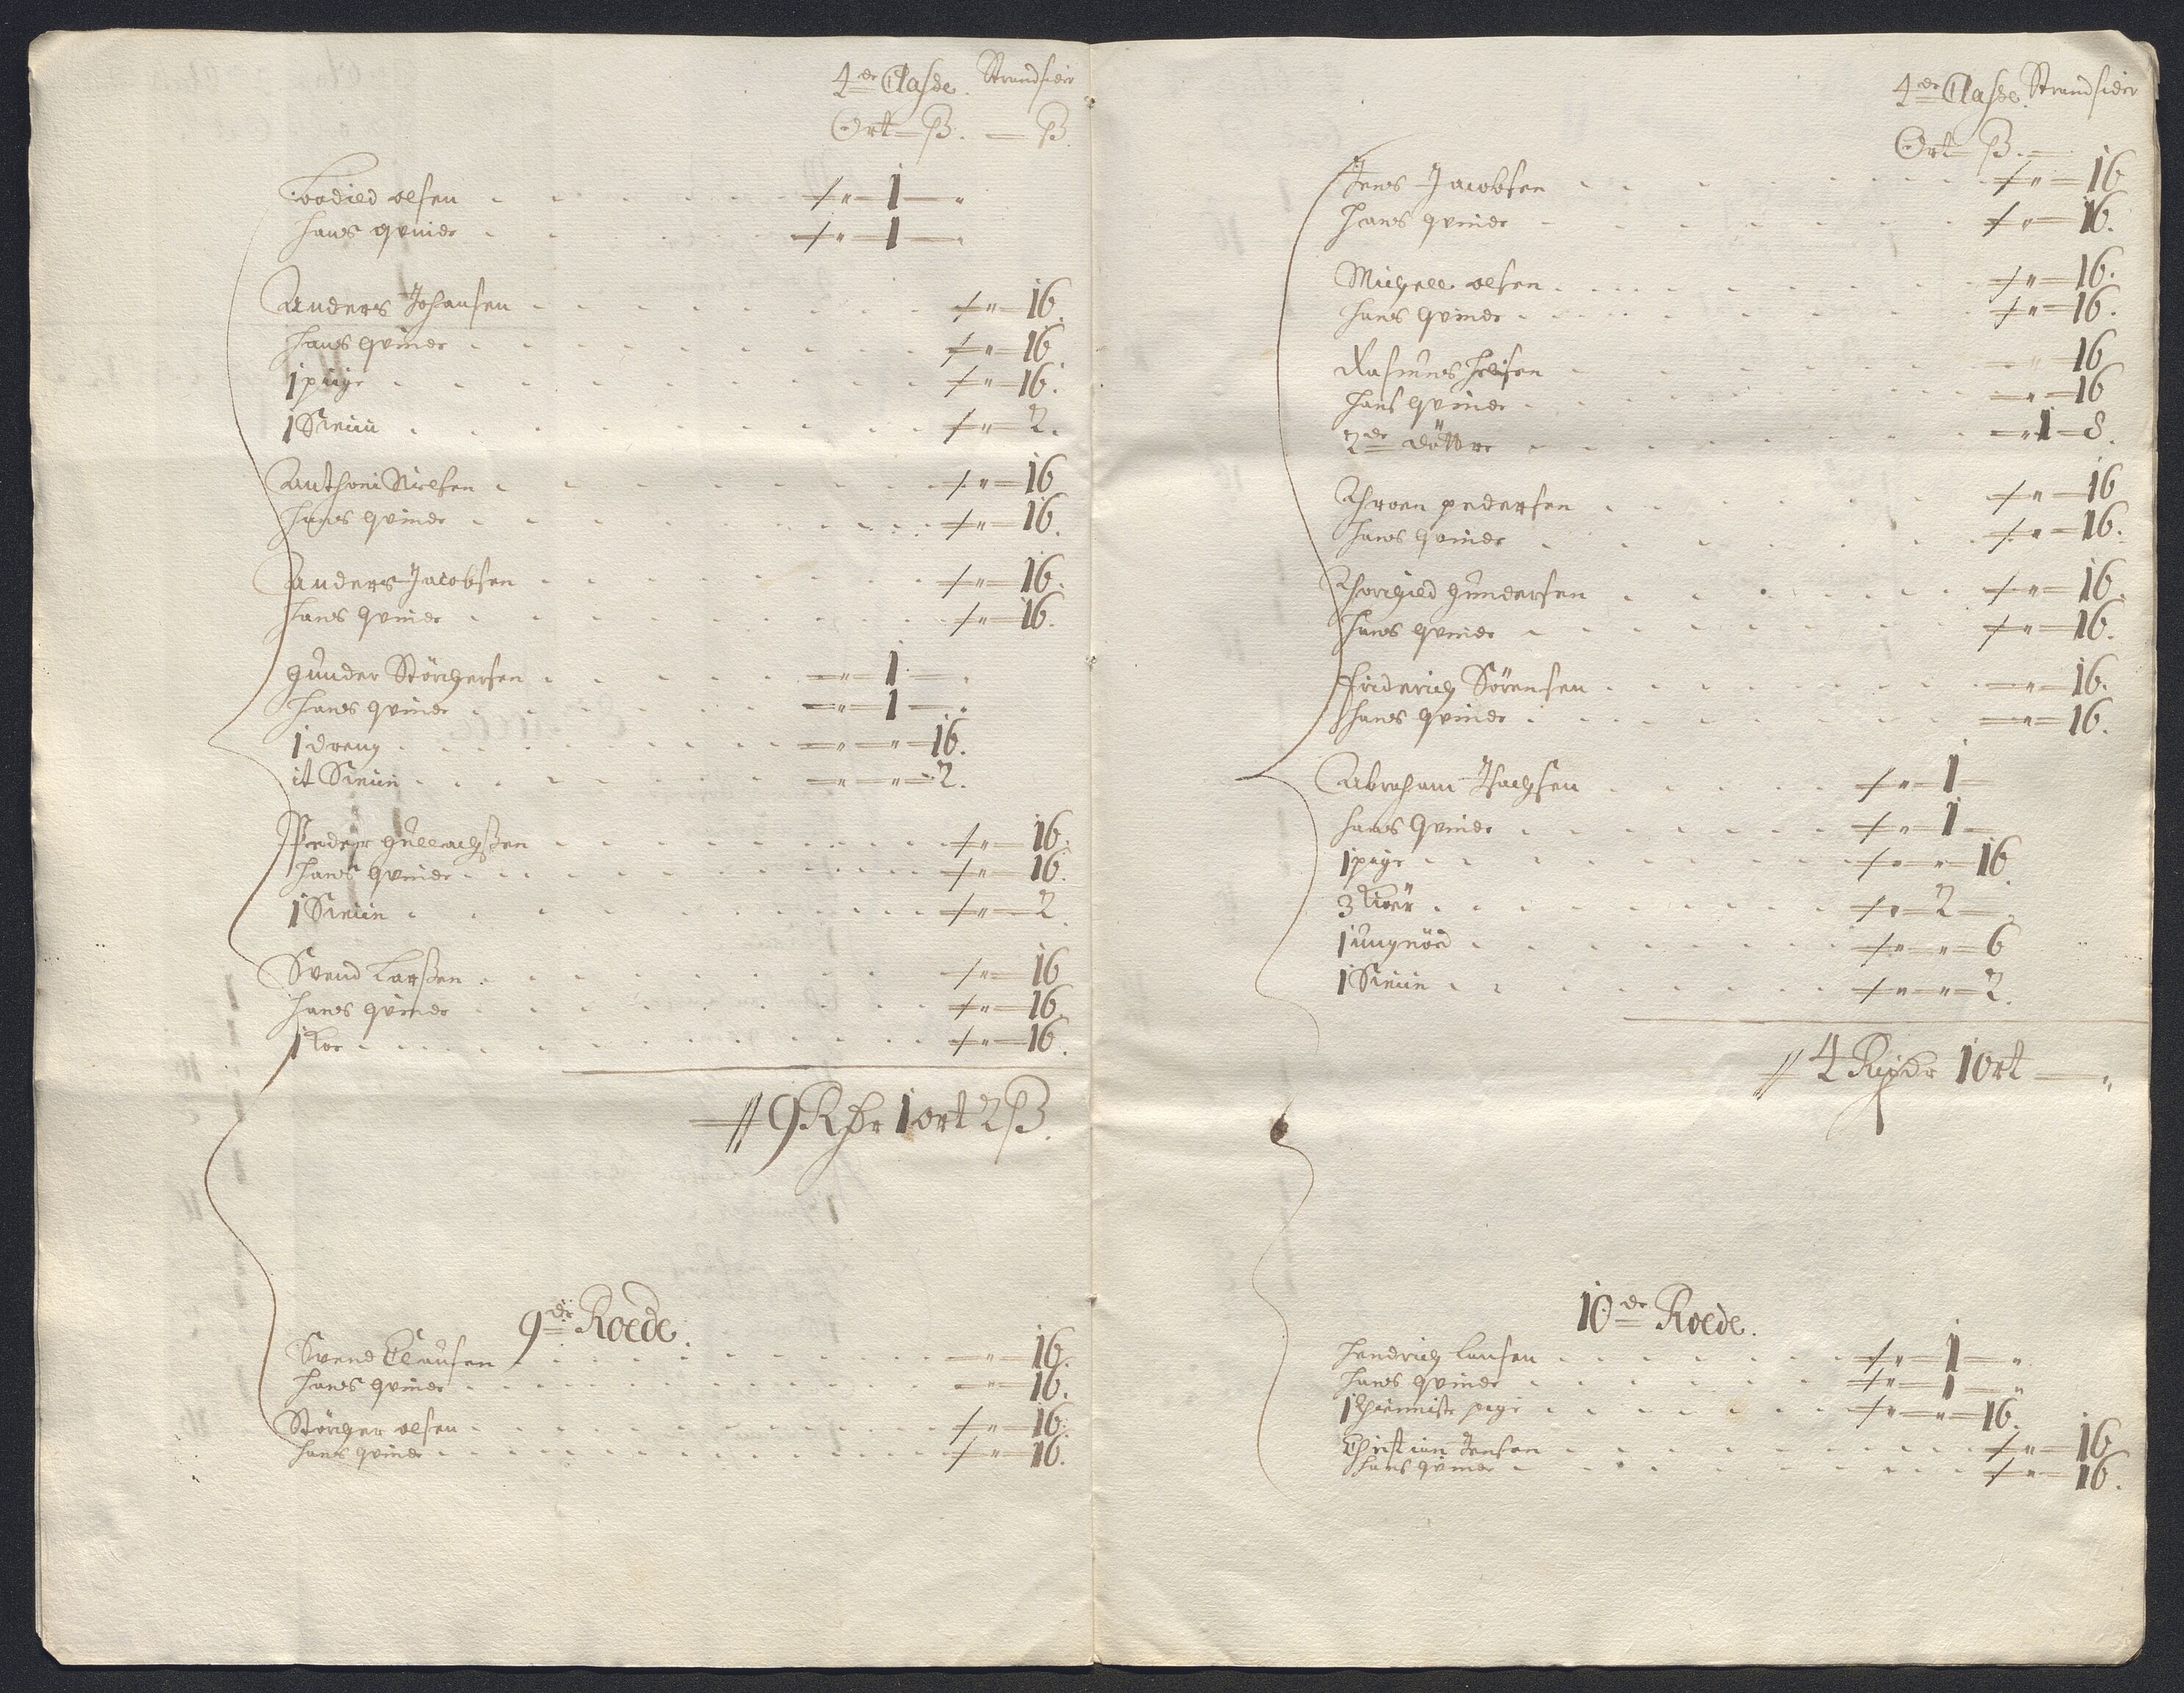 4de Classe. Strandsider
Ort ß. ß
Bodild olsen 1
hans qvinde 1
Anders Johansen 16
hans qvinde 16
1 pige 16.
1 Sviin 2.
Anthoni Nielsen 16
hans qvinde 16.
Anders Jacobsen 16.
hans qvinde 16.
gunder Störchersen 1
hans qvinde 1
1 dreng 16.
it Sviin 2.
Peder gullachßen 16.
hans qvinde 16.
1 Sviin 2
Svend Larßen 16
hans qvinde 16.
1 Koe 16.
// 9 Rdr 1 ort 2 ß.
9de Roede.
Svend Clausen 16.
hans qvinde 16.
Störcher olsen 16.
hans qvinde 16.
4de Classe. Strandsider
Ort ß.
Jens Jacobsen 16
hans qvinde 16.
Michell olsen 16.
hans qvinde 16.
Rasmus 16
hans qvinde 16
2de döttre 1 8.
Throen pedersen 16
hans qvinde 16.
Thorchild gundersen 16.
hans qvinde 16.
Friderich Sörensen 16.
hans qvinde 16.
Abraham Isachsen 1
hans qvinde 1
1 pige 16.
3 kiör 2
1 ungnöd 6
1 Sviin 2.
// 4 Rixdr 1 ort
10de Roede.
hendrich Lausen 1
hans qvinde 1
1 thienniste pige 16.
Christian Jensen 16
hans qvinde 16.